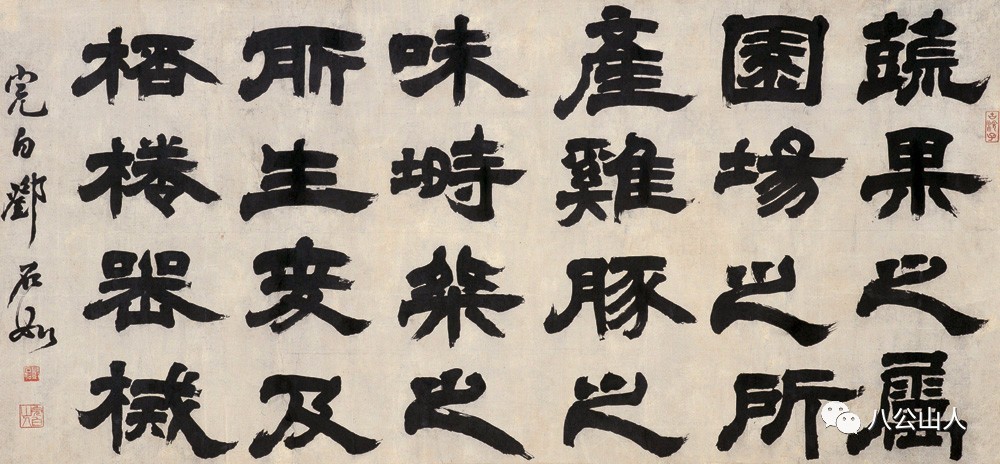 蔬果之屬
園場之所
產雞豚之
味塒桀之
所生爰及
桮棬器械
完白鄧石如
八公山人